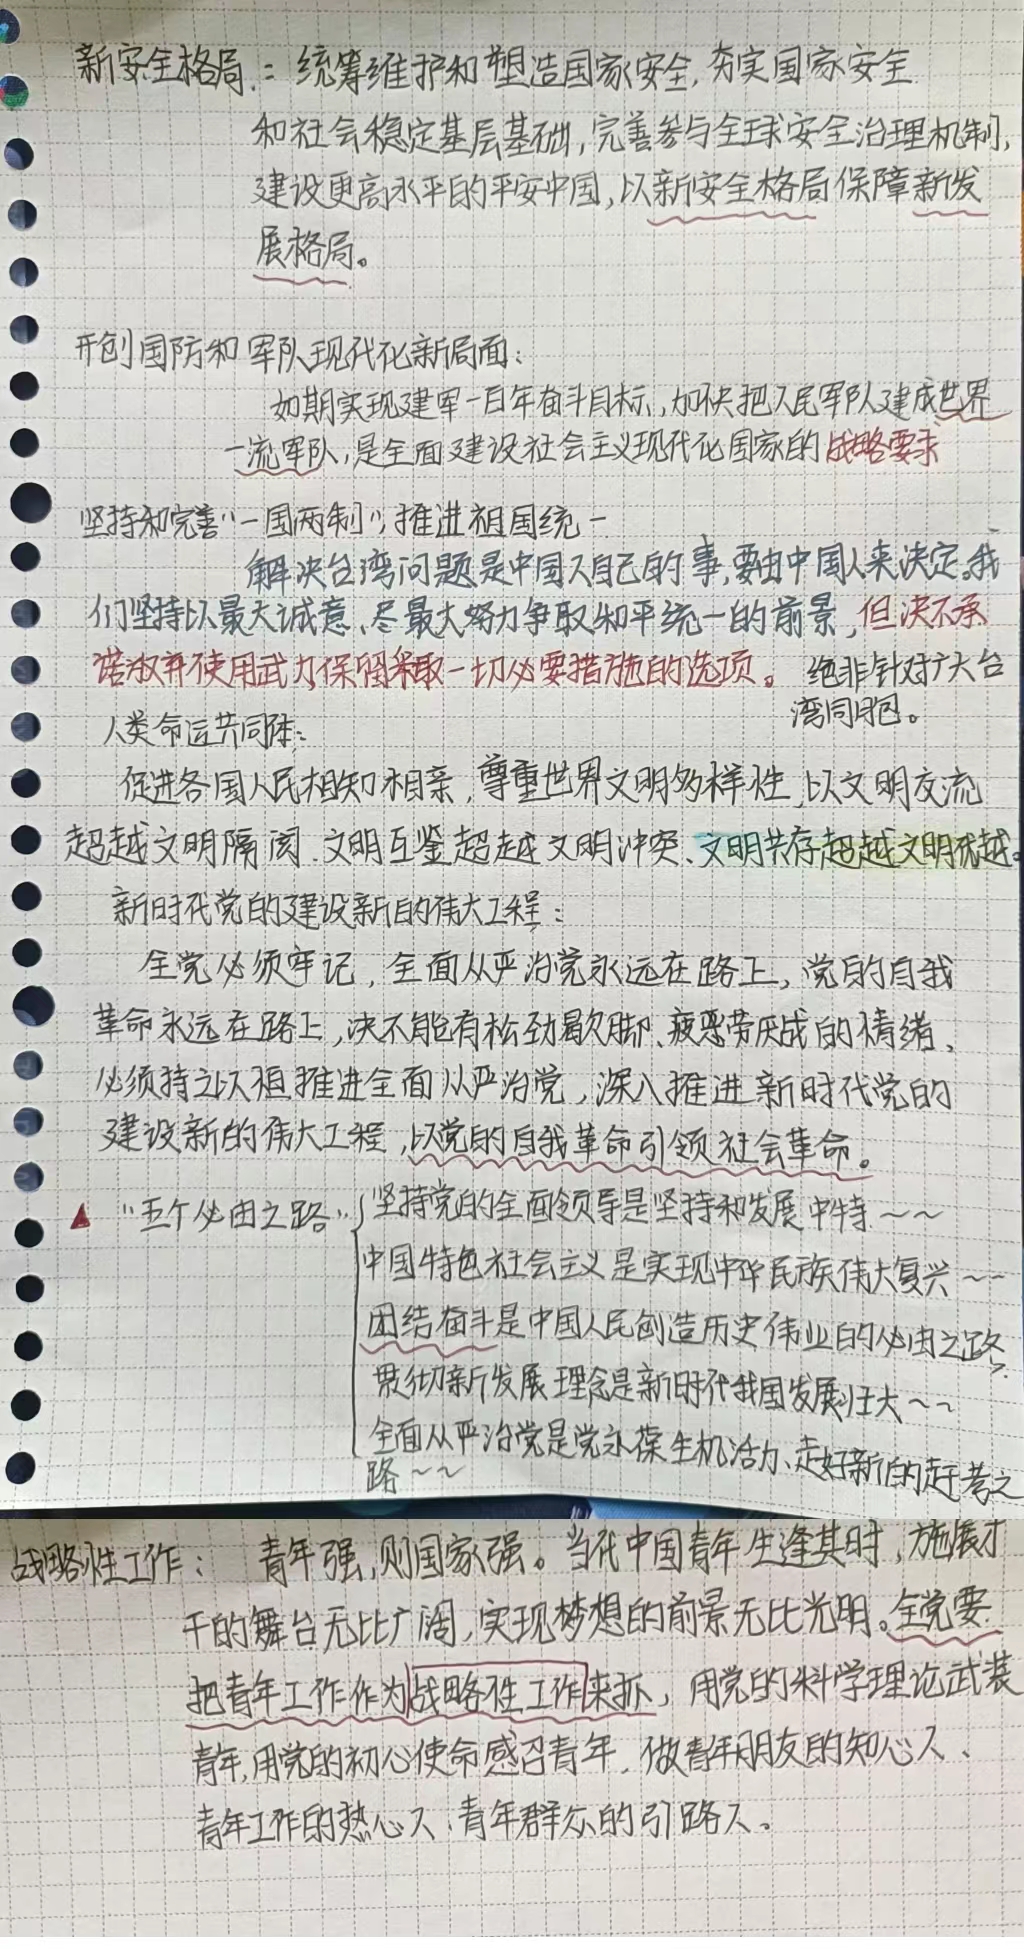 新安全格局：统筹维护和塑造国家安全，夯实国家安全
和社会稳定基层基础，完善参与全球安全治理机制，
建设更高水平的平安中国，以新安全格局保障新发
展格局。
开创国防和军队现代化新局面：
如期实现建军一百年奋斗目标，加快把人民军队建成世界
一流军队，是全面建设社会主义现代化国家的战略要求
坚持和完善“一国两制”，推进祖国统一
解决台湾问题是中国人自己的事，要由中国人来决定。我
们坚持以最大诚意、尽最大努力争取和平统一的前景，但决不承
诺放弃使用武力，保留采取一切必要措施的选项。 绝非针对广大台
湾同胞。
人类命运共同体：
促进各国人民相知相亲，尊重世界文明多样性，以文明交流
超越文明隔阂、文明互鉴超越文明冲突、文明共存超越文明优越。
新时代党的建设新的伟大工程：
全党必须牢记，全面从严治党永远在路上，党的自我
革命永远在路上，决不能有松劲歇脚、疲惫劳厌战的情绪，
必须持之以恒推进全面从严治党，深入推进新时代党的
建设新的伟大工程，以党的自我革命引领社会革命。
▲ “五个必由之路” 坚持党的全面领导是坚持和发展中特～～
中国特色社会主义是实现中华民族伟大复兴～～
团结奋斗是中国人民创造历史伟业的必由之路
贯彻新发展理念是新时代我国发展壮大～～
全面从严治党是党永葆生机活力、走好新的赶考之
路～～
战略性工作： 青年强，则国家强。当代中国青年生逢其时，施展才
干的舞台无比广阔，实现梦想的前景无比光明。全党要
把青年工作作为战略性工作来抓，用党的科学理论武装
青年，用党的初心使命感召青年，做青年朋友的知心人、
青年工作的热心人、青年群众的引路人。